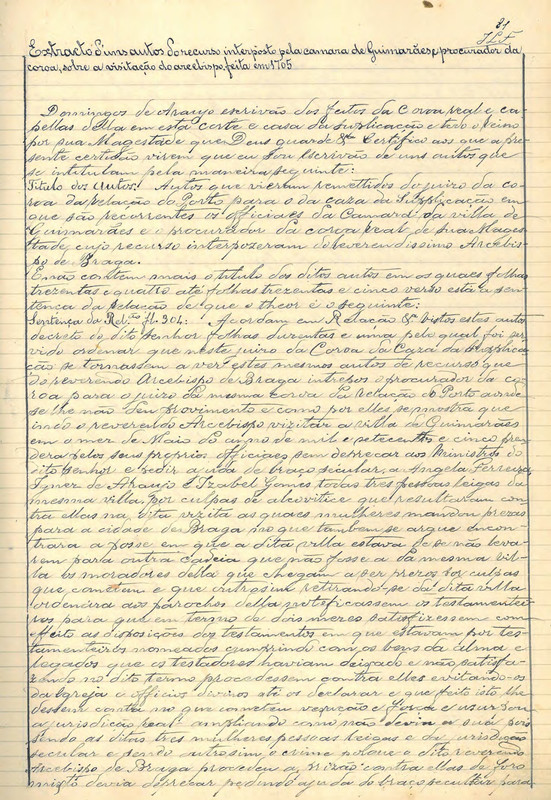 81
J.L.F.
Extracto d'uns autos do recurso interposto pela camara de Guimarães e procurador da
coroa, sobre a visitação do arcebispo, feita em 1705
Domingos de Araujo escrivão dos feitos da Coroa real e ca-
pellas d'ella em esta corte e casa da supplicação e todo o reino
por sua Magestade que Deus guarde &ª Certifico aos que a pre-
sente certidão virem que eu sou Escrivão de uns autos que
se intitulam pela maneira seguinte:
Titulo dos Autos: Autos que vieram remettidos do juizo da co-
roa da relação do Porto para o da caza da Supplicação em
que são recorrentes os officiaes da Camara da villa de
Guimarães e o procurador da coroa real de sua Mages-
tade, cujo recurso interposeram do reverendissimo Arcebis-
po de Braga.
E não contem mais o titulo dos ditos autos em os quaes folhas
trezentas e quatro até folhas trezentas e cinco verso está a sen-
tença da relação de que o theor é o seguinte:
Sentença da Relção fl. 304: Acordam em Relação &ª Vistos estes autos
decreto do dito Senhor folhas duzentas e uma pelo qual foi ser-
vido ordenar que neste juizo da Coroa da Caza da Supplica-
ção se tornassem a ver estes mesmos autos de recurso que
do reverendo Arcebispo de Braga interpos o procurador da co-
roa para o juizo da mesma coroa da Relação do Porto aonde
se lhe não deu provimento e como por elles se mostra que
indo o reverendo Arcebispo vizitar a villa de Guimarães
em o mez de Maio do anno de mil e setecentos e cinco pren-
dera pelos seus proprios officiaes sem deprecar aos Ministros do
dito Senhor e pedir ajuda de braço secular, a Angela Ferreira
Ignez de Araujo e Izabel Gomes todas tres pessoas leigas da
mesma villa, por culpas de alcovitice que resultaram con-
tra ellas na dita vizita as quaes mulheres mandou prezas
para a cidade de Braga no que tambem se argue encon-
trara a posse em que a dita villa estava de se não leva-
rem para outra Cadeia que não fosse a da mesma vil-
la os moradores della que chegam a ser prezos por culpas
que cometem e que outrosim retirando-se da dita villa
ordenára aos parochos della notificassem os testamentei-
ros para que em termo de dois mezes satisfizessem com
effeito as disposições dos testamentos em que estavam por tes-
tamenteiros nomeados cumprindo com os bens da alma e
legados que os testadores haviam deixado e não satisfa-
zendo no dito termo procedessem contra elles evitando-os
da Egreja e officios divinos até os declarar e que feito isto lhe
dessem conta no que cometeu vexação e força e usurpou
a jurisdicção real ampliando como não devia a sua pois
sendo as ditas tres mulheres pessoas leigas e da jurisdição
secular e sendo outrosim o crime porque o dito reverendo
Arcebispo de Braga procedeu a prizão contra ellas de foro
mixto devia deprecar pedindo ajuda do braço secular para